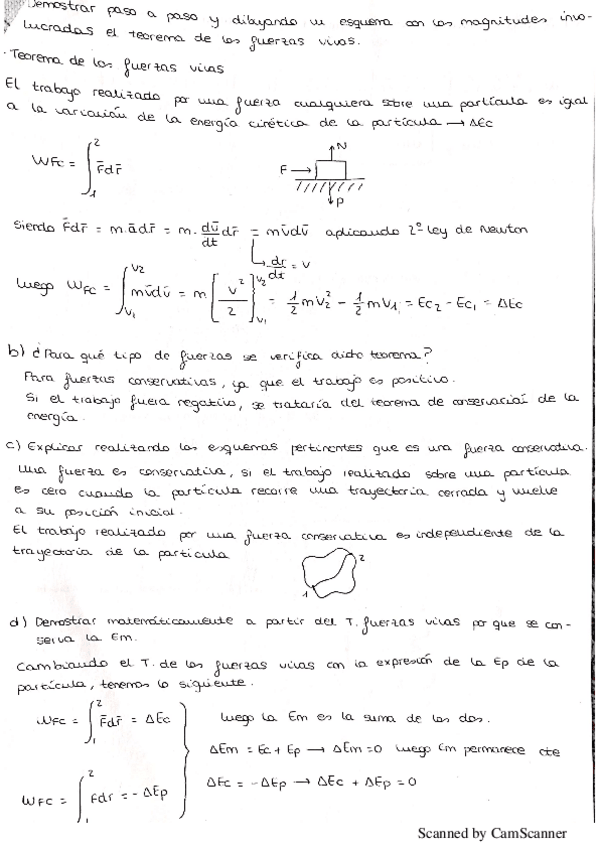 Demostrar paso a paso y dibujando un esquema con las magnitudes invo-
lucradas el teorema de las fuerzas vivas.
· Teorema de las fuerzas vivas
El trabajo realizado por una fuerza cualquiera sobre una partícula es igual
a la variación de la energía cinética de la partícula → ΔEc
WFc = ∫₁² F̄dr̄
N
F
P
Siendo F̄dr̄ = m.ādr̄ = m. dū/dt dr̄ = mūdū aplicando 2º ley de Newton
dr/dt = v
luego WFC = ∫v₁^v₂ mūdū = m. [v²/2]v₁^v₂ = 1/2 mv₂² - 1/2 mv₁ = Ec₂ - Ec₁ = ΔEc
b) ¿Para qué tipo de fuerzas se verifica dicho teorema?
Para fuerzas conservativas, ya que el trabajo es positivo.
Si el trabajo fuera negativo, se trataría del teorema de conservación de la
energía.
c) Explicar realizando los esquemas pertinentes que es una fuerza conservativa.
Una fuerza es conservativa, si el trabajo realizado sobre una partícula
es cero cuando la partícula recorre una trayectoria cerrada y vuelve
a su posición inicial.
El trabajo realizado por una fuerza conservativa es independiente de la
trayectoria de la partícula
1 2
d) Demostrar matemáticamente a partir del T. fuerzas vivas por que se con-
serva la Em.
Cambiando el T. de las fuerzas vivas con la expresión de la Ep de la
partícula, tenemos lo siguiente.
WFC = ∫₁² F̄dr̄ = ΔEc
luego la Em es la suma de las dos.
ΔEm = Ec + Ep → ΔEm = 0 luego Em permanece cte
WFC = ∫₁² Fdr = - ΔEp
ΔEc = - ΔEp → ΔEc + ΔEp = 0
Scanned by CamScanner